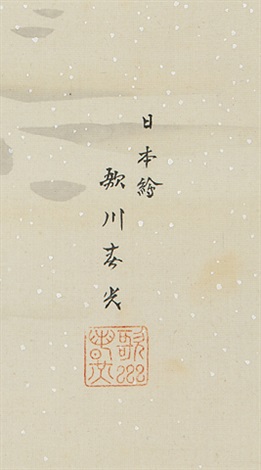 日本絵
歌川春光